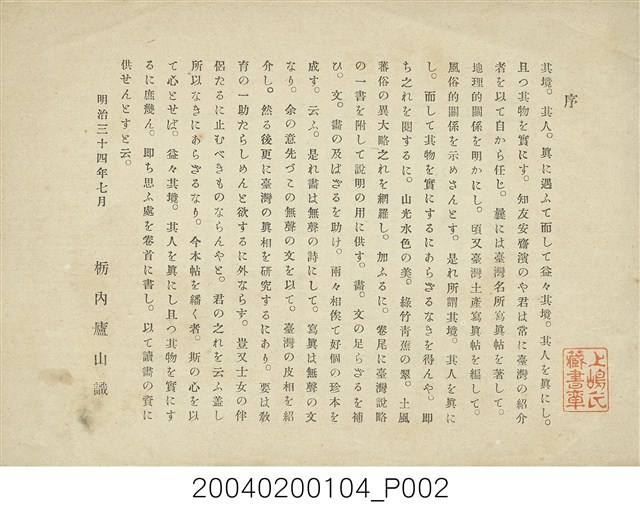 序
其境。其人。眞に遇ふて而して益々其境。其人を眞にし。
且つ其物を實にす。知友安齋濱のや君は常に臺灣の紹介
者を以て自から任じ。曩には臺灣名所寫眞帖を著して。
地理的關係を明かにし。頃又臺灣土產寫眞帖を編して。
風俗的關係を示めさんとす。是れ所謂其境。其人を眞に
し。而して其物を實にするにあらざるなきを得んや。即
ち之れを閱するに。山光水色の美。綠竹靑蕉の翠。土風
蕃俗の異大略之れを網羅し。加ふるに。卷尾に臺灣說略
の一書を附して說明の用に供す。畵。文の足らざるを補
ひ。文。畵の及ばざるを助け。兩々相俟て好個の珍本を
成す。云ふ。是れ畵は無聲の詩にして。寫眞は無聲の文
なり。余の意先づこの無聲の文を以て。臺灣の皮相を紹
介し。然る後更に臺灣の眞相を研究するにあり。要は敎
育の一助たらしめんと欲するに外ならず。豈又士女の伴
侶たるに止むべきものならんやと。君の之れを云ふ蓋し
所以なきにあらざるなり。今本帖を繙く者。斯の心を以
て心とせば。益々其境。其人を眞にし且つ其物を實にす
るに庶幾ん。即ち思ふ處を卷首に書し。以て讀畵の資に
供せんとすと云。
明治三十四年七月
栃內廬山識
上嶋氏
藏書章
20040200104_P002